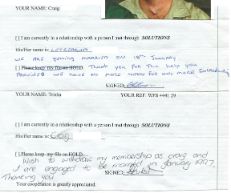 YOUR NAME: Craig
[ ] I am currently in a relationship with a person I met through SOLUTIONS
His/Her name is:
we are getting married on 18th January
[ ] Please keep my file on HOLD. Thank you for the help you
provided we have no more need for any more
SIGNED
YOUR NAME: Tricia YOUR REF: WPS
[ ] I am currently in a relationship with a person I met through SOLUTIONS
His/Her name is: Craig
[ ] Please keep my file on HOLD.
Wish to withdraw my membership as craig and
I are engaged to be married in January 1997.
Thanking you SIGNED
Your cooperation is greatly appreciated.